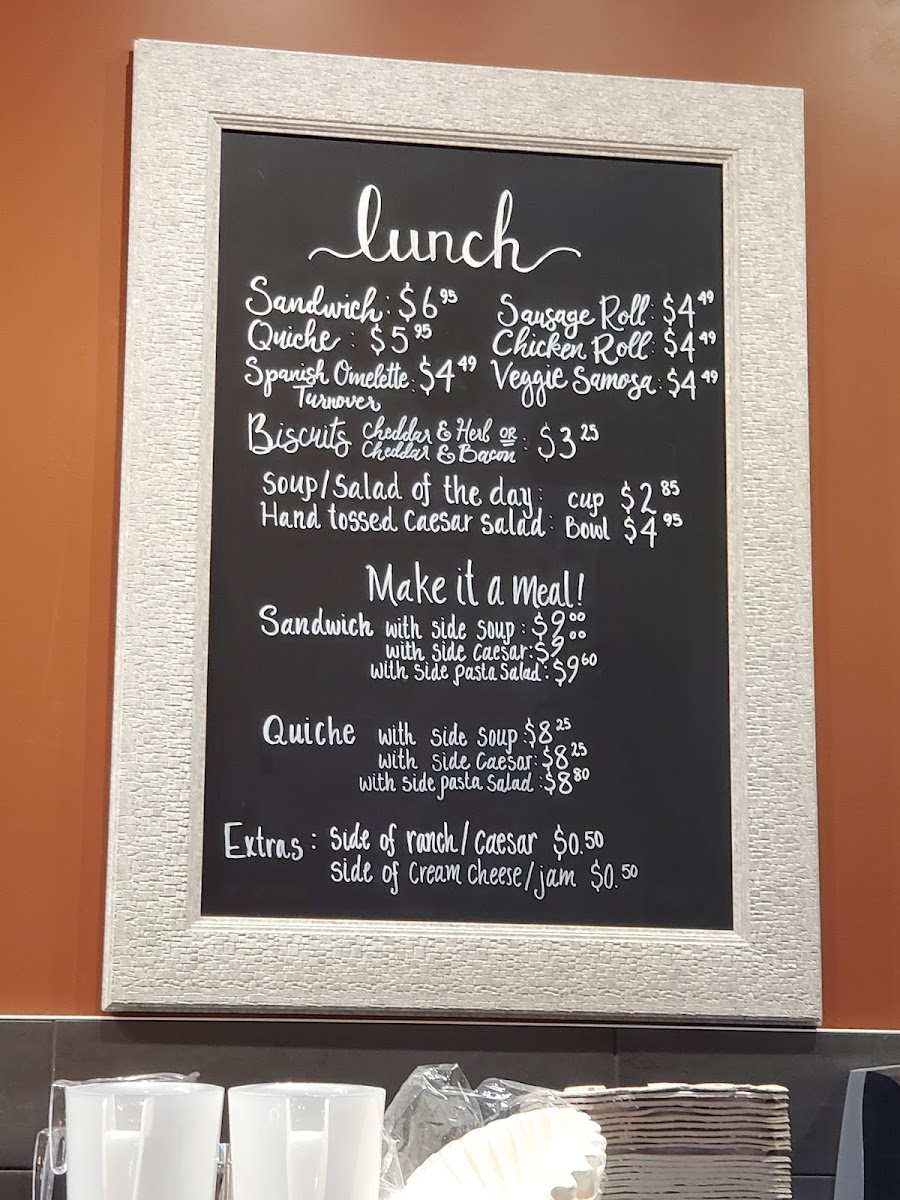 lunch
Sandwich: $6.95
Sausage Roll: $4.49
Quiche : $5.95
Chicken Roll: $4.49
Spanish Omelette Turnover: $4.49
Veggie Samosa: $4.49
Biscuits Cheddar & Herb OR : $3.25
Cheddar & Bacon
Soup/Salad of the day: cup $2.85
Hand tossed Caesar salad: Bowl $4.95
Make it a meal!
Sandwich with side soup: $9.00
with side caesar: $9.00
with side pasta salad: $9.60
Quiche with side soup: $8.25
with side Caesar: $8.25
with side pasta salad: $8.80
Extras: side of ranch/caesar $0.50
side of cream cheese/jam $0.50